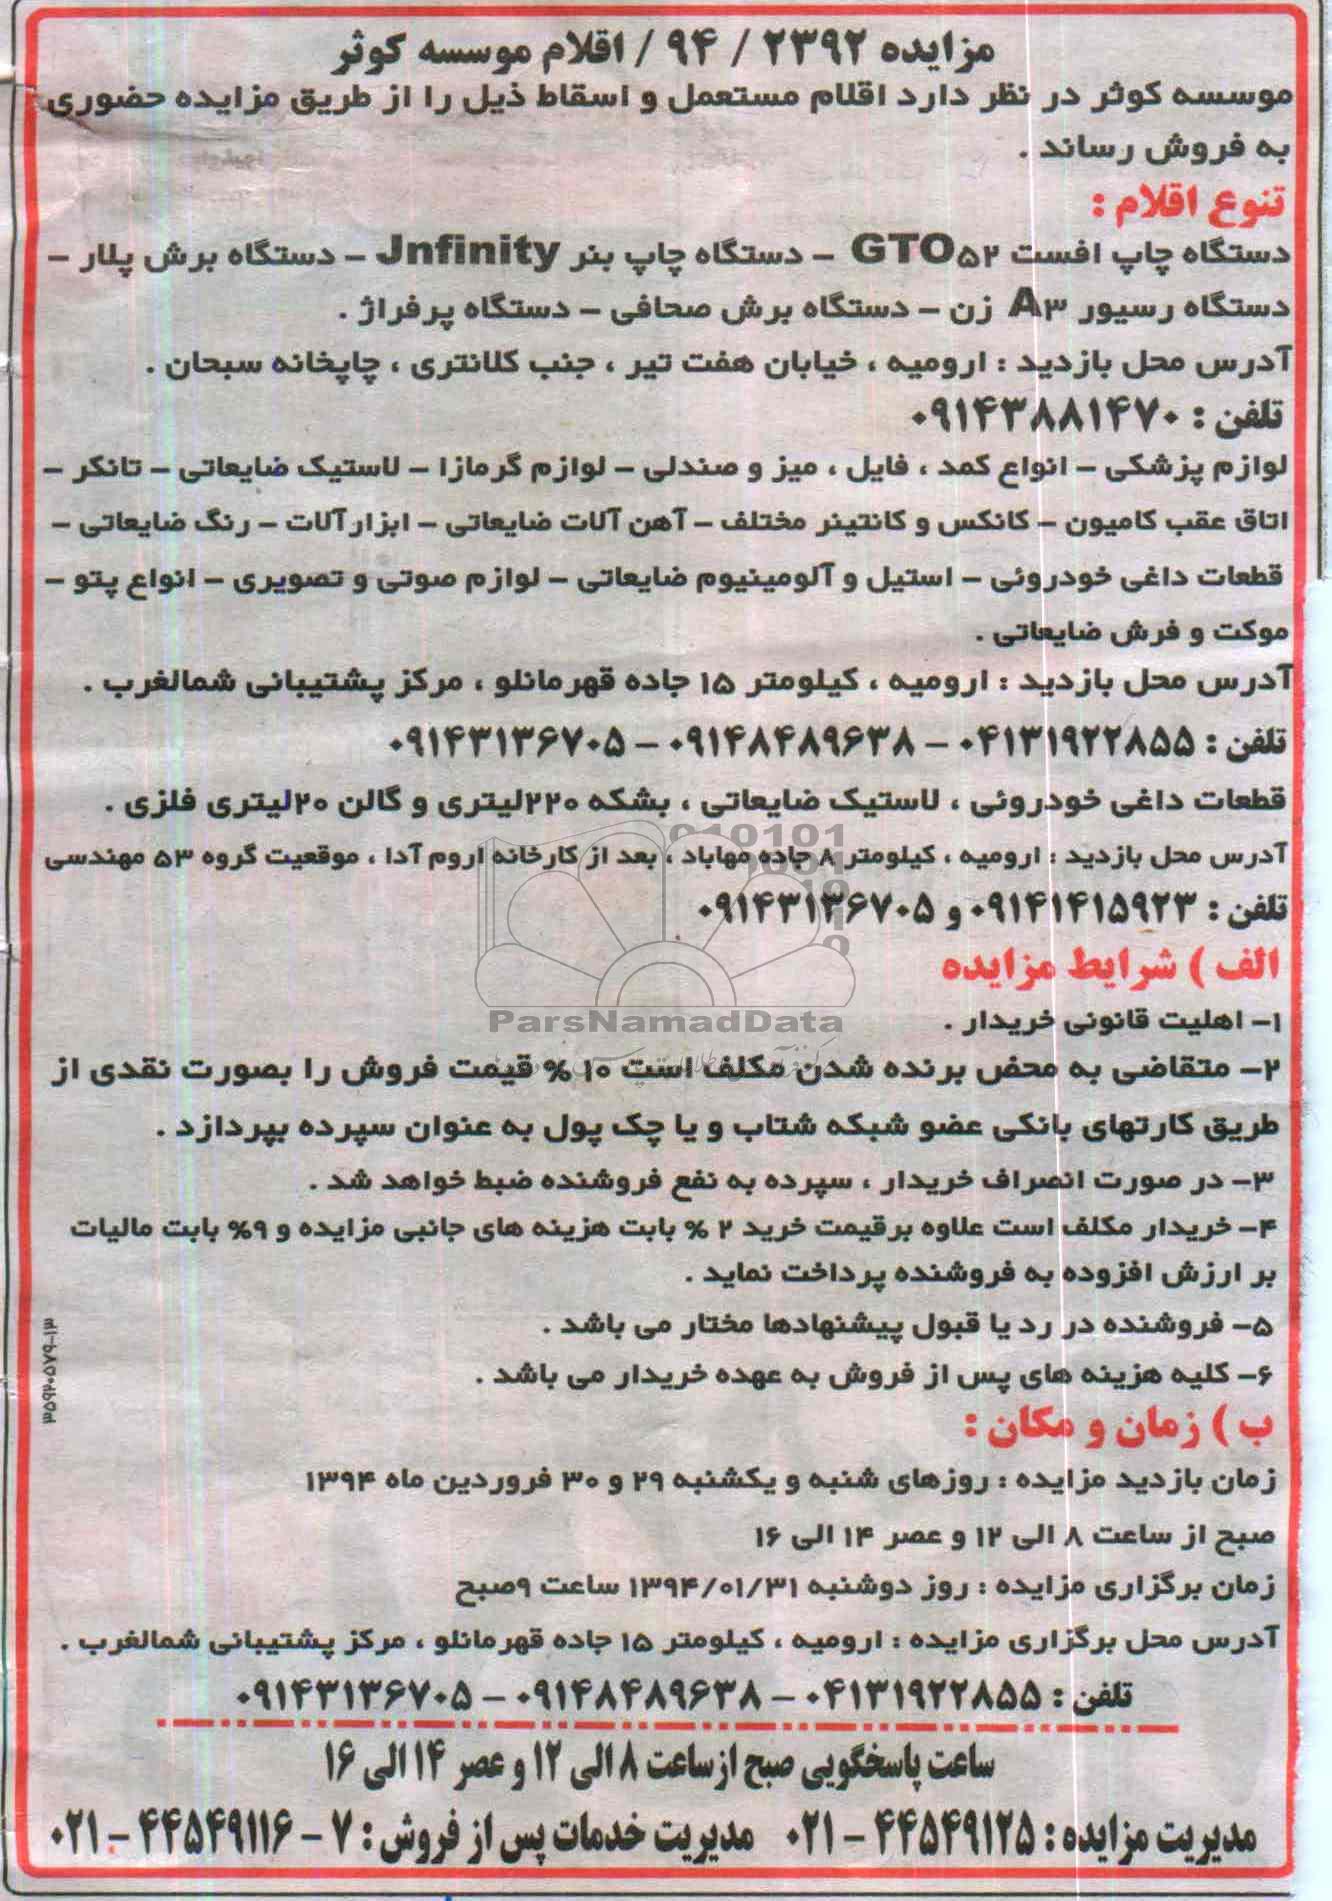 مزایده ۲۳۹۲ / ۹۴ / اقلام موسسه کوثر
موسسه کوثر در نظر دارد اقلام مستعمل و اسقاط ذیل را از طریق مزایده حضوری
به فروش رساند .
تنوع اقلام :
دستگاه چاپ افست GTO۵۲ – دستگاه چاپ بنر Jnfinity – دستگاه برش پلار –
دستگاه رسیور A۳ زن – دستگاه برش صحافی – دستگاه پرفراژ .
آدرس محل بازدید : ارومیه ، خیابان هفت تیر ، جنب کلانتری ، چاپخانه سبحان .
تلفن : ۰۹۱۴۳۸۸۱۴۷۰
لوازم پزشکی – انواع کمد ، فایل ، میز و صندلی – لوازم گرمازا – لاستیک ضایعاتی – تانکر –
اتاق عقب کامیون – کانکس و کانتینر مختلف – آهن آلات ضایعاتی – ابزارآلات – رنگ ضایعاتی –
قطعات داغی خودروئی – استیل و آلومینیوم ضایعاتی – لوازم صوتی و تصویری – انواع پتو –
موکت و فرش ضایعاتی .
آدرس محل بازدید : ارومیه ، کیلومتر ۱۵ جاده قهرمانلو ، مرکز پشتیبانی شمالغرب .
تلفن : ۰۴۱۳۱۹۲۲۸۵۵ – ۰۹۱۴۸۴۸۹۶۳۸ – ۰۹۱۴۳۱۳۶۷۰۵
قطعات داغی خودروئی ، لاستیک ضایعاتی ، بشکه ۲۲۰لیتری و گالن ۲۰لیتری فلزی .
آدرس محل بازدید : ارومیه ، کیلومتر ۸ جاده مهاباد ، بعد از کارخانه اروم آدا ، موقعیت گروه ۵۳ مهندسی
تلفن : ۰۹۱۴۱۴۱۵۹۲۳ و ۰۹۱۴۳۱۳۶۷۰۵
الف ) شرایط مزایده
ParsNamadData
۱– اهلیت قانونی خریدار .
۲– متقاضی به محض برنده شدن مکلف است ۱۰ % قیمت فروش را بصورت نقدی از
طریق کارتهای بانکی عضو شبکه شتاب و یا چک پول به عنوان سپرده بپردازد .
۳– در صورت انصراف خریدار ، سپرده به نفع فروشنده ضبط خواهد شد .
۴– خریدار مکلف است علاوه برقیمت خرید ۲ % بابت هزینه های جانبی مزایده و ۹% بابت مالیات
بر ارزش افزوده به فروشنده پرداخت نماید .
۵– فروشنده در رد یا قبول پیشنهادها مختار می باشد .
۶– کلیه هزینه های پس از فروش به عهده خریدار می باشد .
ب ) زمان و مکان :
زمان بازدید مزایده : روزهای شنبه و یکشنبه ۲۹ و ۳۰ فروردین ماه ۱۳۹۴
صبح از ساعت ۸ الی ۱۲ و عصر ۱۴ الی ۱۶
زمان برگزاری مزایده : روز دوشنبه ۱۳۹۴/۰۱/۳۱ ساعت ۹صبح
آدرس محل برگزاری مزایده : ارومیه ، کیلومتر ۱۵ جاده قهرمانلو ، مرکز پشتیبانی شمالغرب .
تلفن : ۰۴۱۳۱۹۲۲۸۵۵ – ۰۹۱۴۸۴۸۹۶۳۸ – ۰۹۱۴۳۱۳۶۷۰۵
ساعت پاسخگویی صبح ازساعت ۸ الی ۱۲ و عصر ۱۴ الی ۱۶
مدیریت مزایده : ۴۴۵۴۹۱۲۵ – ۰۲۱ مدیریت خدمات پس از فروش : ۷ – ۴۴۵۴۹۱۱۶ – ۰۲۱